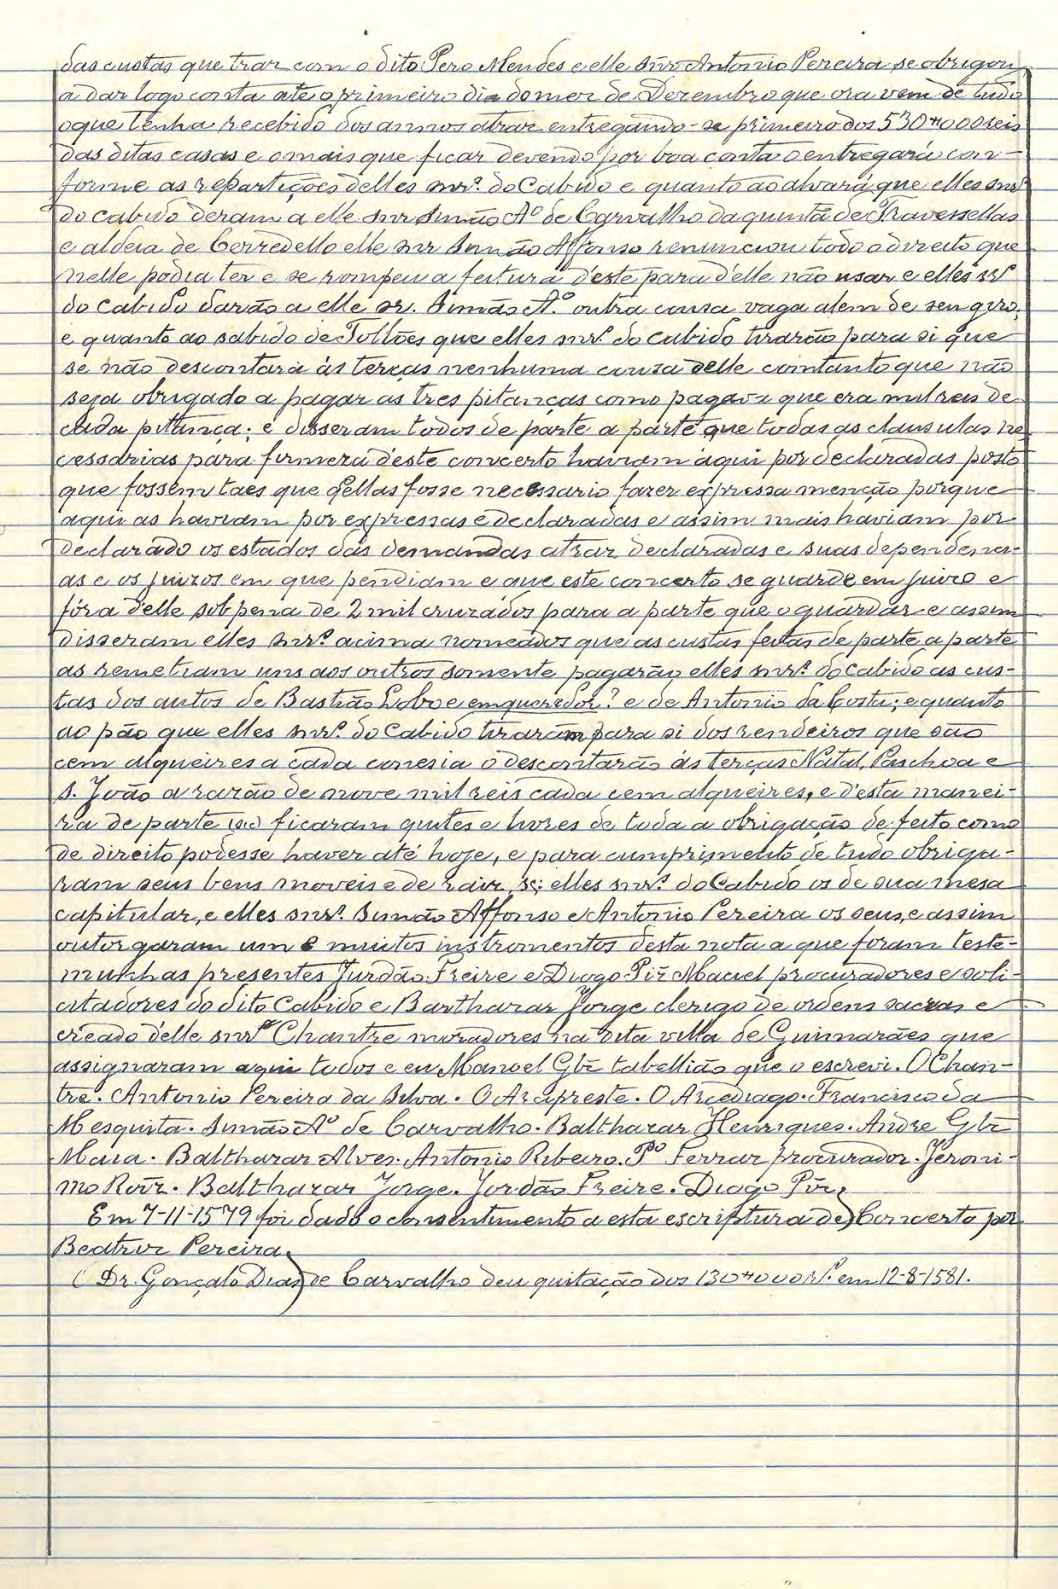 das custas que traz com o dito Pero Mendes e elle snr. Antonio Pereira se obrigou
a dar logo conta até o primeiro dia do mez de Dezembro que ora vem de tudo
o que tenha recebido dos annos atraz entregando-se primeiro dos 530#000 reis
das ditas casas e o mais que ficar devendo por boa conta o entregará con-
forme as repartições delles snrs. do Cabido e quanto ao alvará que elles snrs
do cabido deram a elle snr Simão Aº de Carvalho da quintã de Travessellas
e aldeia de Cerredello elle snr Simão Affonso renunciou todo o direito que
nelle podia ter e se rompeu a feitura d'este para d'elle não usar e elles srs
do Cabido darão a elle sr. Simão Aº. outra cousa vaga alem de seu giro,
e quanto ao sabido de Tollões que elles snrs. do cabido tirarão para si que
se não descontará ás terças nenhuma cousa delle comtanto que não
seja obrigado a pagar as tres pitanças como pagava que era mil reis de
cada pitança; e disseram todos de parte a parte que todas as clausulas ne
cessarias para firmeza d'este concerto haviam aqui por declaradas posto
que fossem taes que dellas fosse necessario fazer expressa menção porque
aqui as haviam por expressas e declaradas e assim mais haviam por
declarado os estados das demandas atraz declaradas e suas dependenci-
as e os juizos em que pendiam e que este concerto se guarde em juizo e
fóra d'elle sob pena de 2 mil cruzados para a parte que o guardar e assim
disseram elles snrs. acima nomeados que as custas feitas de parte a parte
as remetiam uns aos outros somente pagarão elles snrs. do Cabido as cus-
tas dos autos de Bastião Lobo e emqueredor? e de Antonio da Costa; e quanto
ao pão que elles snrs. do Cabido tiraram para si dos rendeiros que são
cem alqueires a cada conesia o descontarão ás terças Natal, Paschoa e
S. João a razão de nove mil reis cada cem alqueires, e d'esta manei-
ra de parte (sic) ficaram quites e livres de toda a obrigação de feito como
de direito podesse haver até hoje, e para cumprimento de tudo obriga-
ram seus bens moveis e de raiz, sc: elles snrs. do Cabido os de sua mesa
capitular, e elles snrs. Simão Affonso e Antonio Pereira os seus, e assim
outorgaram um e muitos instromentos desta nota a que foram teste-
munhas presentes Jurdão Freire e Diogo Piz Maciel procuradores e soli-
citadores do dito Cabido e Balthazar Jorge clerigo de ordens sacras e
creado d'elle snr Chantre moradores na dita villa de Guimarães que
assignaram aqui todos e eu Manoel Glz tabellião que o escrevi. O Chan-
tre. Antonio Pereira da Silva. O Arcipreste. O Arcediago. Francisco da
Mesquita. Simão Aº de Carvalho. Balthazar Henriques. Andre Glz
Maia. Balthazar Alves. Antonio Ribeiro. Pº Ferraz procurador. Jeroni-
mo Roiz. Balthazar Jorge. Jordão Freire. Diogo Piz.
Em 7-11-1579 foi dado o consentimento a esta escriptura de Concerto por
Beatriz Pereira.
O Dr. Gonçalo Dias de Carvalho deu quitação dos 130#000 rs. em 12-8-1581.